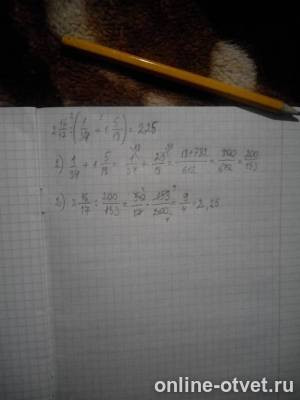 2 16/17 : (1/34 + 1 5/18) = 2,25
1) 1/34 + 1 5/18 = 1/34 + 23/18 = 18+782/612 = 800/612 = 200/153
2) 2 16/17 : 200/153 = 50/17 · 153/200 = 9/4 = 2,25
online-otvet.ru